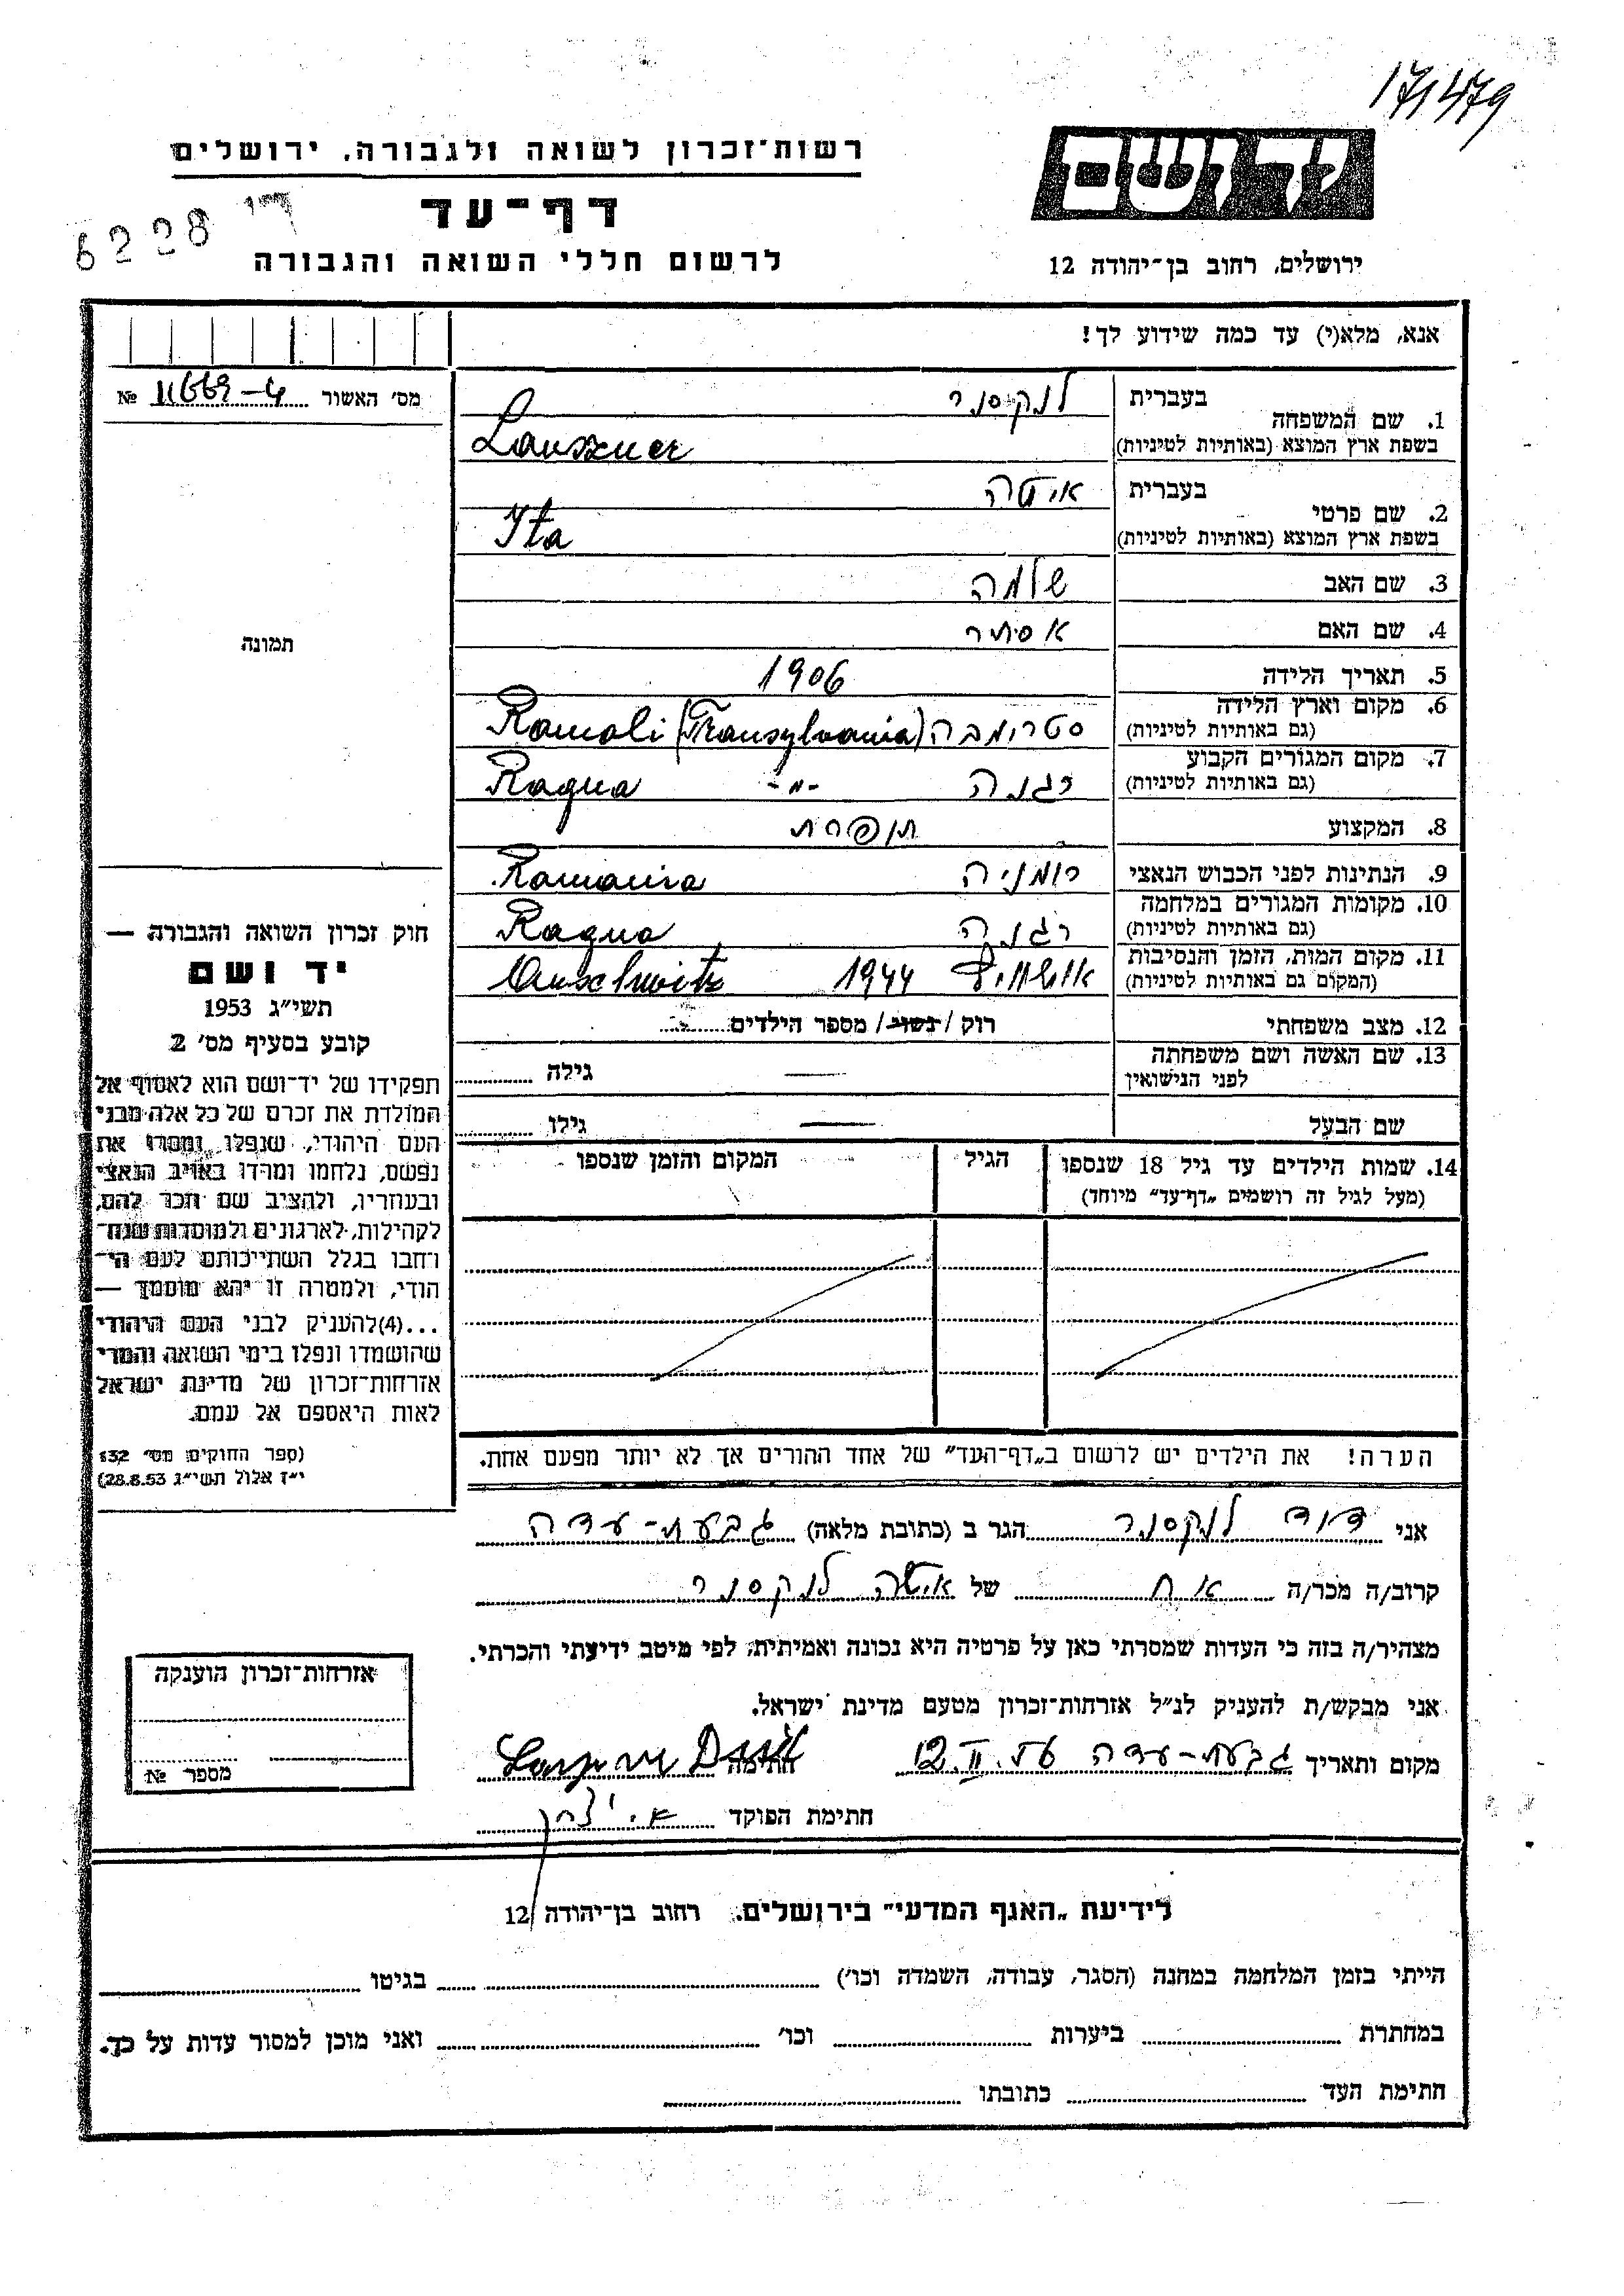 171479
יד ושם
רשות־זכרון לשואה ולגבורה, ירושלים
דף־עד
6228
לרשום חללי השואה והגבורה
ירושלים, רחוב בן־יהודה 12
אנא, מלא(י) עד כמה שידוע לך!
מס׳ האשור 11669-4 №
תמונה
בעברית לנקסנר
1. שם המשפחה
בשפת ארץ המוצא (באותיות לטיניות)
בעברית איטה
2. שם פרטי
בשפת ארץ המוצא (באותיות לטיניות) Ita
3. שם האב שלמה
4. שם האם אסתר
5. תאריך הלידה 1906
6. מקום וארץ הלידה
(גם באותיות לטיניות) סטרומבה (Transylvania)
7. מקום המגורים הקבוע
(גם באותיות לטיניות) רגנה -"- Ragna
8. המקצוע תופרת
9. הנתינות לפני הכבוש הנאצי רומניה Romania
10. מקומות המגורים במלחמה
(גם באותיות לטיניות) רגנה Ragna
11. מקום המות, הזמן והנסיבות
(המקום גם באותיות לטיניות) אושוויץ 1944 Auschwitz
12. מצב משפחתי רוק / נשוי / מספר הילדים
13. שם האשה ושם משפחתה
לפני הנישואין גילה
שם הבעל גילו
14. שמות הילדים עד גיל 18 שנספו הגיל המקום והזמן שנספו
(מעל לגיל זה רושמים „דף־עד" מיוחד)
הערה! את הילדים יש לרשום ב„דף־העד" של אחד ההורים אך לא יותר מפעם אחת.
חוק זכרון השואה והגבורה —
יד ושם
תשי״ג 1953
קובע בסעיף מס׳ 2
תפקידו של יד־ושם הוא לאסוף אל
המולדת את זכרם של כל אלה מבני
העם היהודי, שנפלו ומסרו את
נפשם, נלחמו ומרדו באויב הנאצי
ובעוזריו, ולהציב שם וזכר להם,
לקהילות, לארגונים ולמוסדות שנח־
רבו בגלל השתייכותם לעם הי־
הודי, ולמטרה זו יהא מוסמך —
...(4) להעניק לבני העם היהודי
שהושמדו ונפלו בימי השואה והמרי
אזרחות־זכרון של מדינת ישראל
לאות היאספם אל עמם.
(ספר החוקים מס׳ 132
י״ז אלול תשי״ג 28.8.53)
אני דוד לנקסנר הגר ב (כתובת מלאה) גבעת-עדה
קרוב/ה מכר/ה אח של איטה לנקסנר
מצהיר/ה בזה כי העדות שמסרתי כאן על פרטיה היא נכונה ואמיתית, לפי מיטב ידיעתי והכרתי.
אני מבקש/ת להעניק לנ״ל אזרחות־זכרון מטעם מדינת ישראל.
מקום ותאריך גבעת-עדה 12.II.56 חתימה
חתימת הפוקד
אזרחות־זכרון הוענקה
מספר №
לידיעת „האגף המדעי" בירושלים, רחוב בן־יהודה 12
הייתי בזמן המלחמה במחנה (הסגר, עבודה, השמדה וכו׳) בגיטו
במחתרת ביערות וכו׳ ואני מוכן למסור עדות על כך.
חתימת העד כתובתו